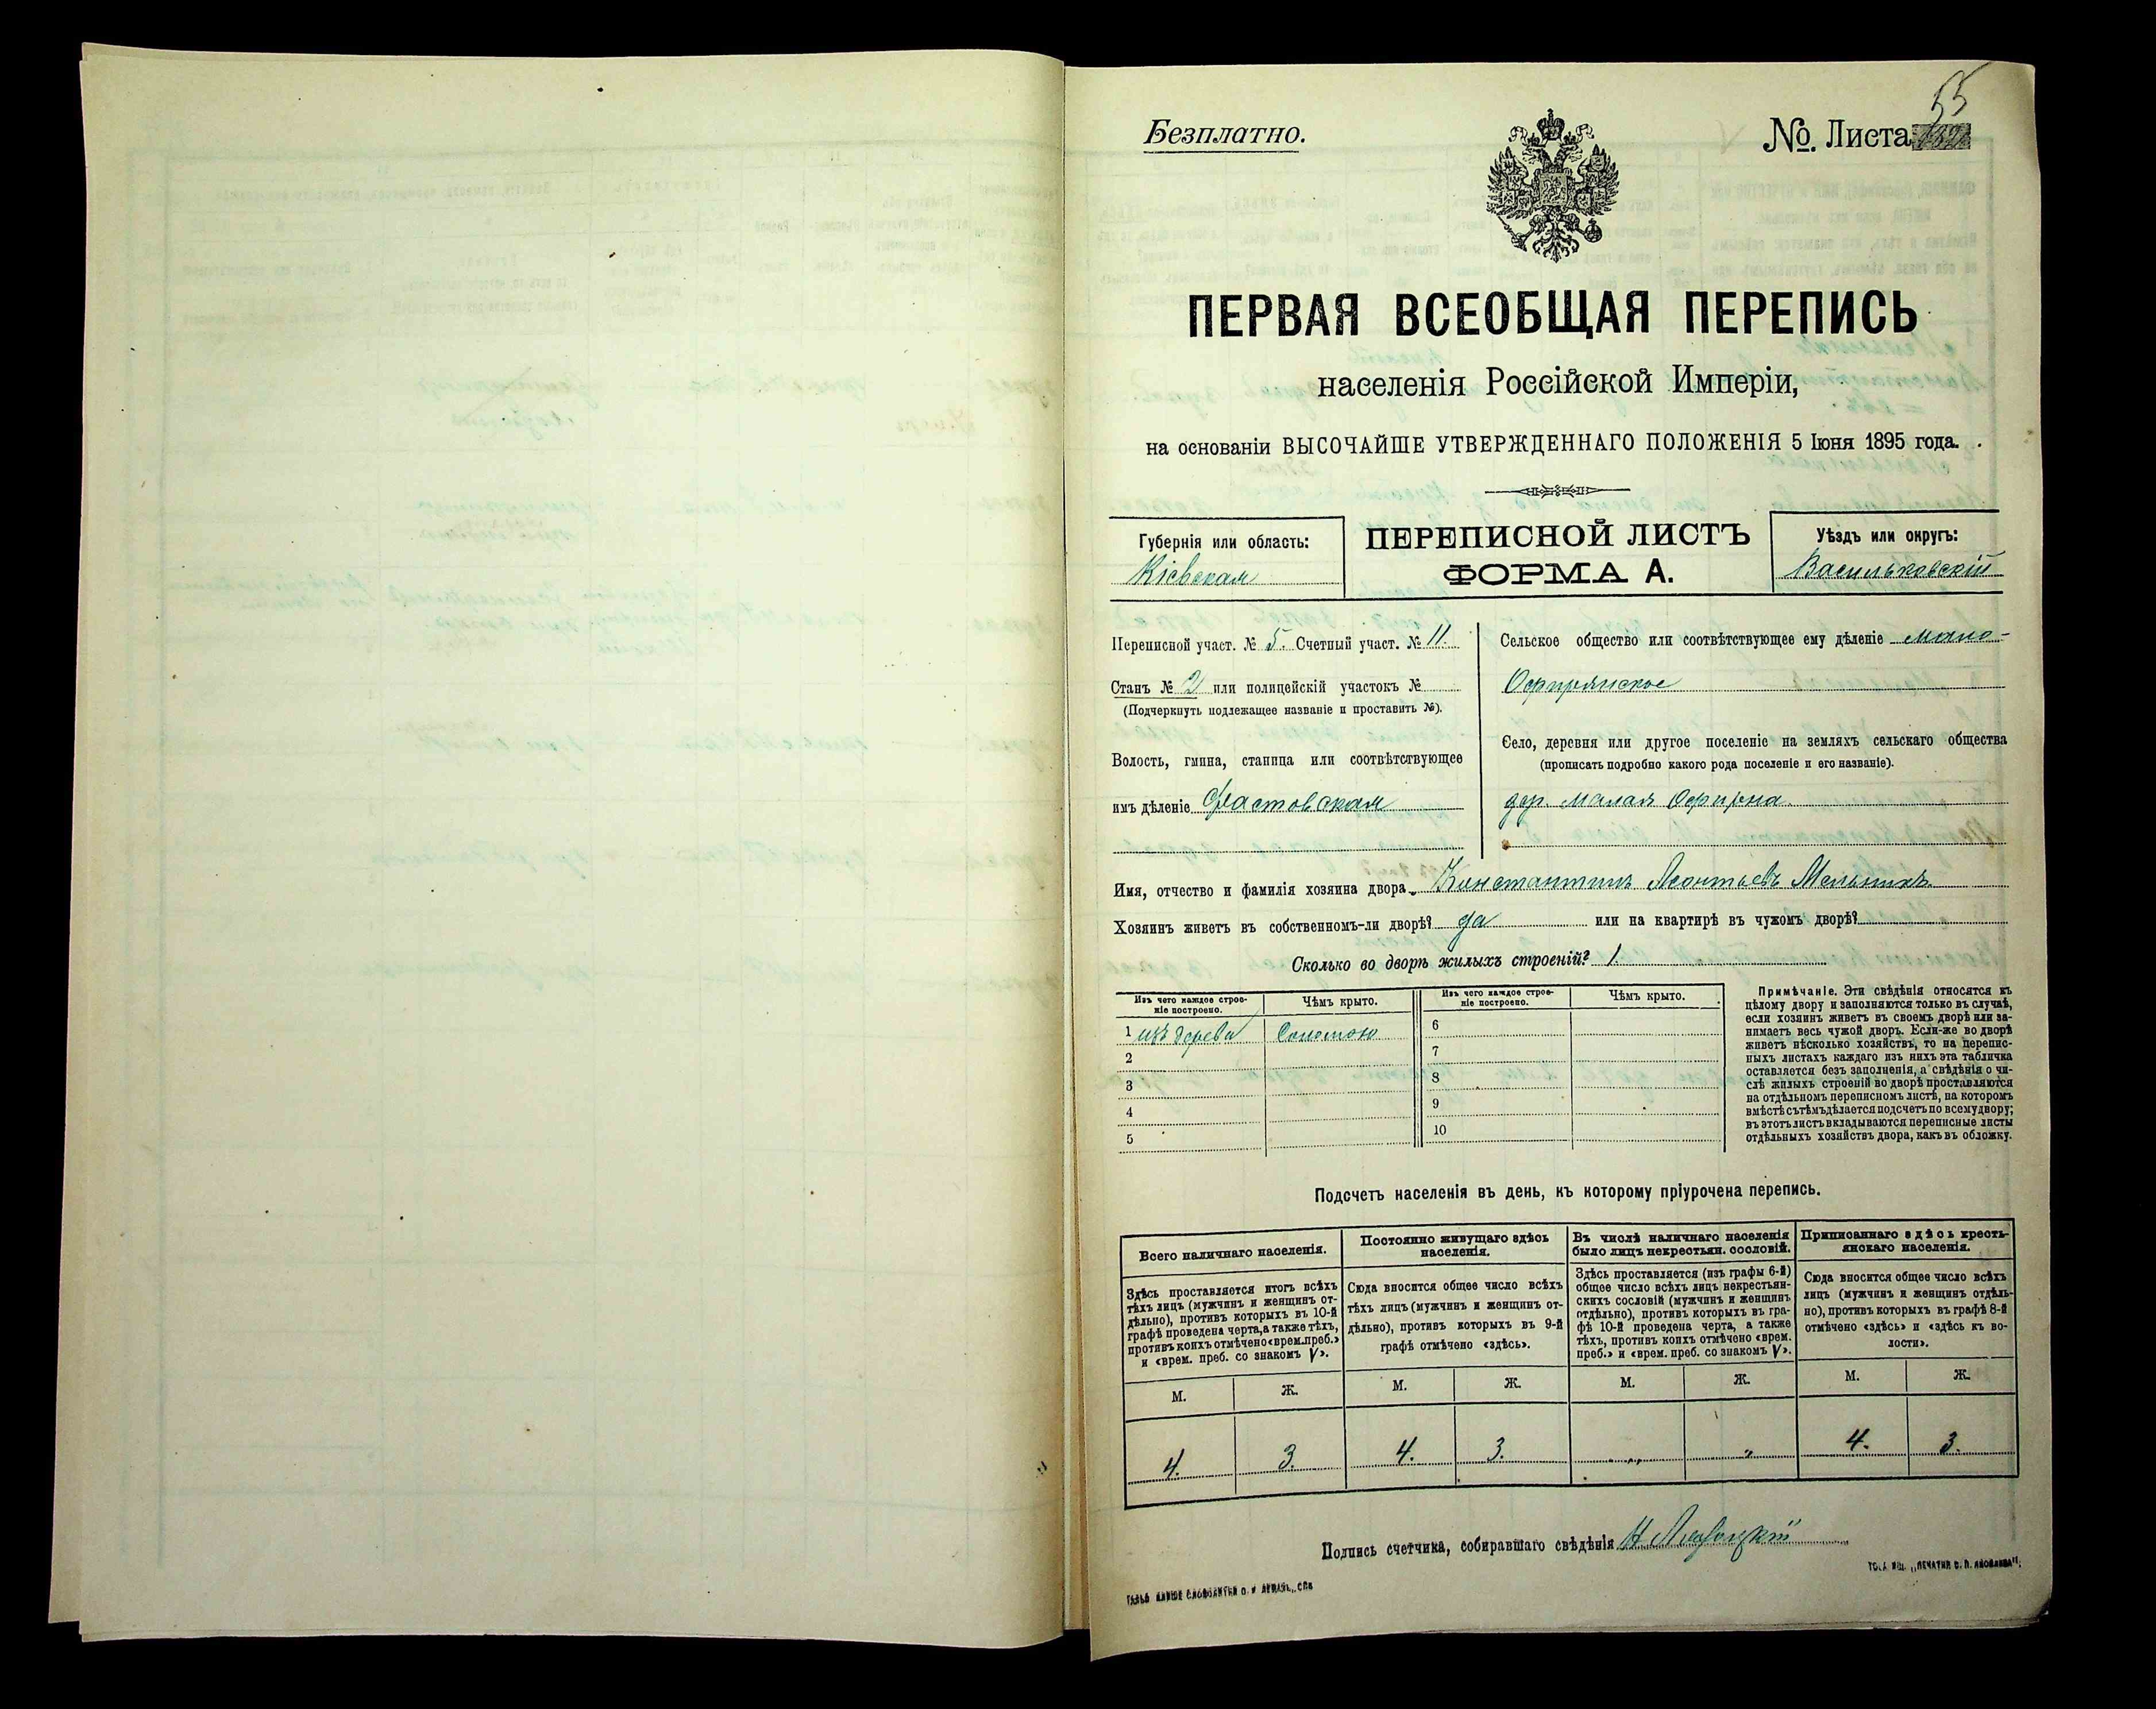 55
Безплатно.
№. Листа
ПЕРВАЯ ВСЕОБЩАЯ ПЕРЕПИСЬ
населенія Россійской Имперіи,
на основаніи ВЫСОЧАЙШЕ УТВЕРЖДЕННАГО ПОЛОЖЕНІЯ 5 Іюня 1895 года.
Губернія или область:
Кіевская
ПЕРЕПИСНОЙ ЛИСТЪ
ФОРМА А.
Уѣздъ или округъ:
Васильковскій
Переписной участ. № 5. Счетный участ. № 11.
Станъ № 2 или полицейскій участокъ №
(Подчеркнуть подлежащее названіе и проставить №).
Волость, гмина, станица или соотвѣтствующее
имъ дѣленіе Фастовская
Сельское общество или соотвѣтствующее ему дѣленіе Мало-
Офирянское
Село, деревня или другое поселеніе на земляхъ сельскаго общества
(прописать подробно какого рода поселеніе и его названіе).
дер. Малая Офирна
Имя, отчество и фамилія хозяина двора Константинъ Леонтьевъ Мельникъ.
Хозяинъ живетъ въ собственномъ-ли дворѣ? да или на квартирѣ въ чужомъ дворѣ?
Сколько во дворѣ жилыхъ строеній? 1.
Изъ чего каждое строе-
ніе построено.
Чѣмъ крыто.
Изъ чего каждое строе-
ніе построено.
Чѣмъ крыто.
1 изъ дерева Соломою
2
3
4
5
6
7
8
9
10
Примѣчаніе. Эти свѣдѣнія относятся къ
цѣлому двору и заполняются только въ случаѣ,
если хозяинъ живетъ въ своемъ дворѣ или за-
нимаетъ весь чужой дворъ. Если-же во дворѣ
живетъ нѣсколько хозяйствъ, то на перепис-
ныхъ листахъ каждаго изъ нихъ эта табличка
оставляется безъ заполненія, а свѣдѣнія о чи-
слѣ жилыхъ строеній во дворѣ проставляются
на отдѣльномъ переписномъ листѣ, на которомъ
вмѣстѣ съ тѣмъ дѣлается подсчетъ по всему двору;
въ этотъ листъ вкладываются переписные листы
отдѣльныхъ хозяйствъ двора, какъ въ обложку.
Подсчетъ населенія въ день, къ которому пріурочена перепись.
Всего наличнаго населенія.
Здѣсь проставляется итогъ всѣхъ
тѣхъ лицъ (мужчинъ и женщинъ от-
дѣльно), противъ которыхъ въ 10-й
графѣ проведена черта, а также тѣхъ,
противъ коихъ отмѣчено «врем. преб.»
и «врем. преб. со знакомъ V».
М. Ж.
4. 3.
Постоянно живущаго здѣсь
населенія.
Сюда вносится общее число всѣхъ
тѣхъ лицъ (мужчинъ и женщинъ от-
дѣльно), противъ которыхъ въ 9-й
графѣ отмѣчено «здѣсь».
М. Ж.
4. 3.
Въ числѣ наличнаго населенія
было лицъ некрестьян. сословій.
Здѣсь проставляется (изъ графы 6-й)
общее число всѣхъ лицъ некрестьян-
скихъ сословій (мужчинъ и женщинъ
отдѣльно), противъ которыхъ въ гра-
фѣ 10-й проведена черта, а также
тѣхъ, противъ коихъ отмѣчено «врем.
преб.» и «врем. преб. со знакомъ V».
М. Ж.
„ „
Приписаннаго здѣсь кресть-
янскаго населенія.
Сюда вносится общее число всѣхъ
лицъ (мужчинъ и женщинъ отдѣль-
но), противъ которыхъ въ графѣ 8-й
отмѣчено «здѣсь» и «здѣсь къ во-
лости».
М. Ж.
4. 3.
Подпись счетчика, собиравшаго свѣдѣнія Н